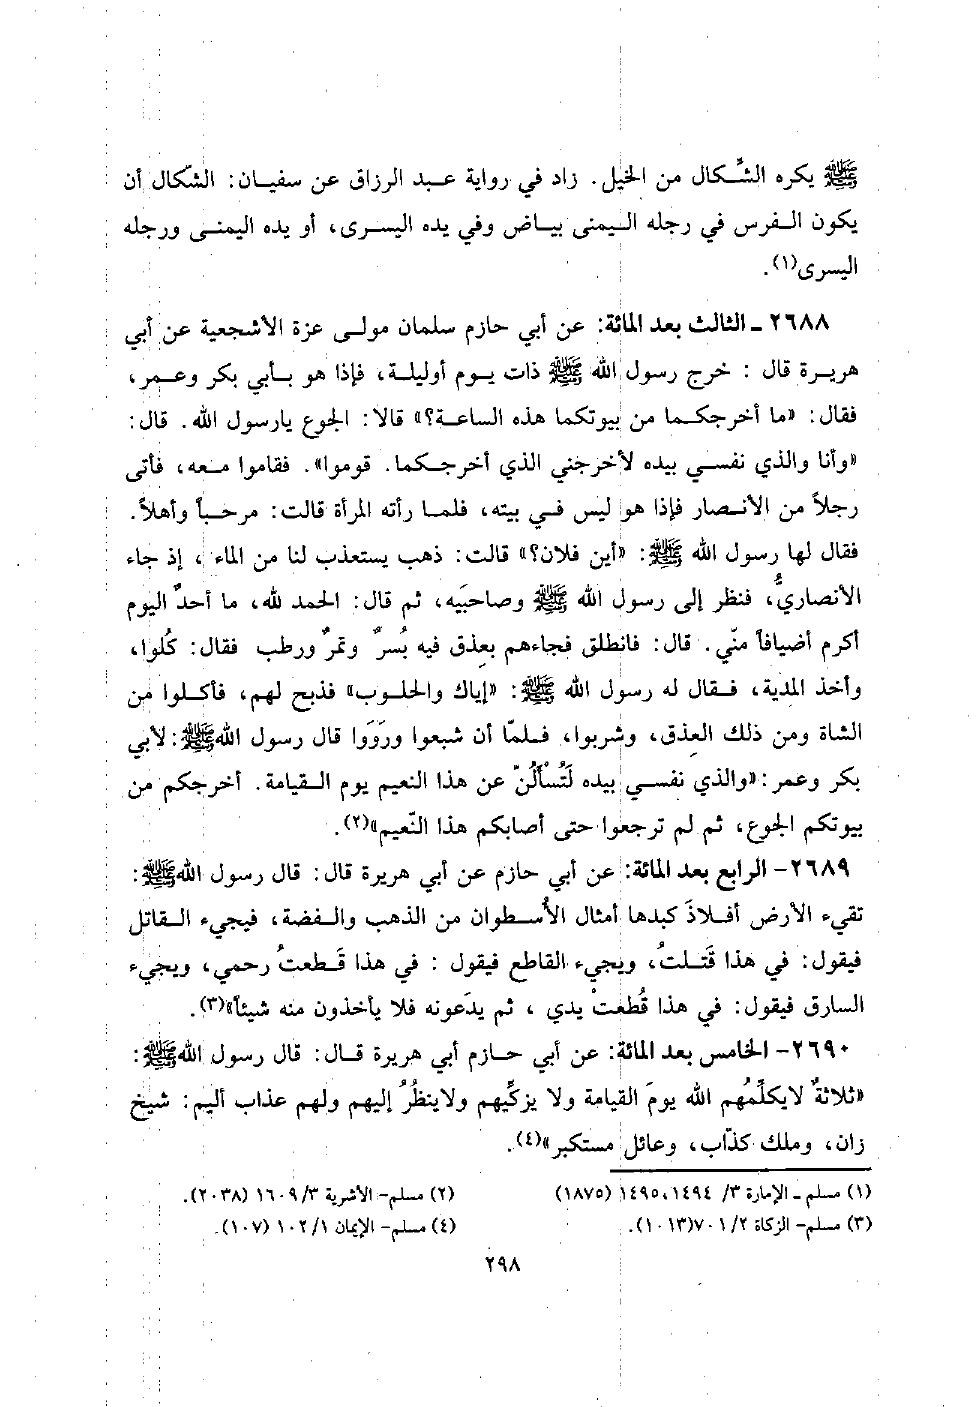 ﷺ يكره الشِّكال من الخيل. زاد في رواية عبد الرزاق عن سفيان: الشّكال أن
يكون الفرس في رجله اليمنى بياض وفي يده اليسرى، أو يده اليمنى ورجله
اليسرى(١).
٢٦٨٨ ـ الثالث بعد المائة: عن أبي حازم سلمان مولى عزة الأشجعية عن أبي
هريرة قال : خرج رسول الله ﷺ ذات يوم أوليلة، فإذا هو بأبي بكر وعمر،
فقال: «ما أخرجكما من بيوتكما هذه الساعة؟» قالا: الجوع يارسول الله. قال:
«وأنا والذي نفسي بيده لأخرجني الذي أخرجكما. قوموا». فقاموا معه، فأتى
رجلاً من الأنصار فإذا هو ليس في بيته، فلما رأته المرأة قالت: مرحباً وأهلاً.
فقال لها رسول الله ﷺ: «أين فلان؟» قالت: ذهب يستعذب لنا من الماء ، إذ جاء
الأنصاريُّ، فنظر إلى رسول الله ﷺ وصاحبَيه، ثم قال: الحمد لله، ما أحدٌ اليوم
أكرم أضيافاً منّي. قال: فانطلق فجاءهم بعِذق فيه بُسرٌ وتمرٌ ورطب فقال: كُلوا،
وأخذ المدية، فقال له رسول الله ﷺ: «إياك والحلوب» فذبح لهم، فأكلوا من
الشاة ومن ذلك العِذق، وشربوا، فلمّا أن شبعوا ورَوَوا قال رسول اللهﷺ:لأبي
بكر وعمر :«والذي نفسي بيده لَتُسْأَلُنّ عن هذا النعيم يوم القيامة. أخرجكم من
بيوتكم الجوع، ثم لم ترجعوا حتى أصابكم هذا النّعيم»(٢).
٢٦٨٩- الرابع بعد المائة: عن أبي حازم عن أبي هريرة قال: قال رسول اللهﷺ:
تقيء الأرض أفلاذَ كبدها أمثال الأُسطوان من الذهب والفضة، فيجيء القاتل
فيقول: في هذا قَتلتُ، ويجيء القاطع فيقول : في هذا قَطعتُ رحمي، ويجيء
السارق فيقول: في هذا قُطعتْ يدي ، ثم يدَعونه فلا يأخذون منه شيئاً»(٣).
٢٦٩٠- الخامس بعد المائة: عن أبي حازم أبي هريرة قال: قال رسول اللهﷺ:
«ثلاثةٌ لايكلِّمُهم الله يومَ القيامة ولا يزكِّيهم ولاينظُرُ إليهم ولهم عذاب أليم: شيخ
زان، وملك كذّاب، وعائل مستكبر»(٤).
(١) مسلم ـ الإمارة ٣/ ١٤٩٤،١٤٩٥ (١٨٧٥)
(٢) مسلم- الأشربة ٣/ ١٦٠٩ (٢٠٣٨).
(٣) مسلم- الزكاة ٢/ ٧٠١(١٠١٣).
(٤) مسلم- الإيمان ١/ ١٠٢ (١٠٧).
٢٩٨